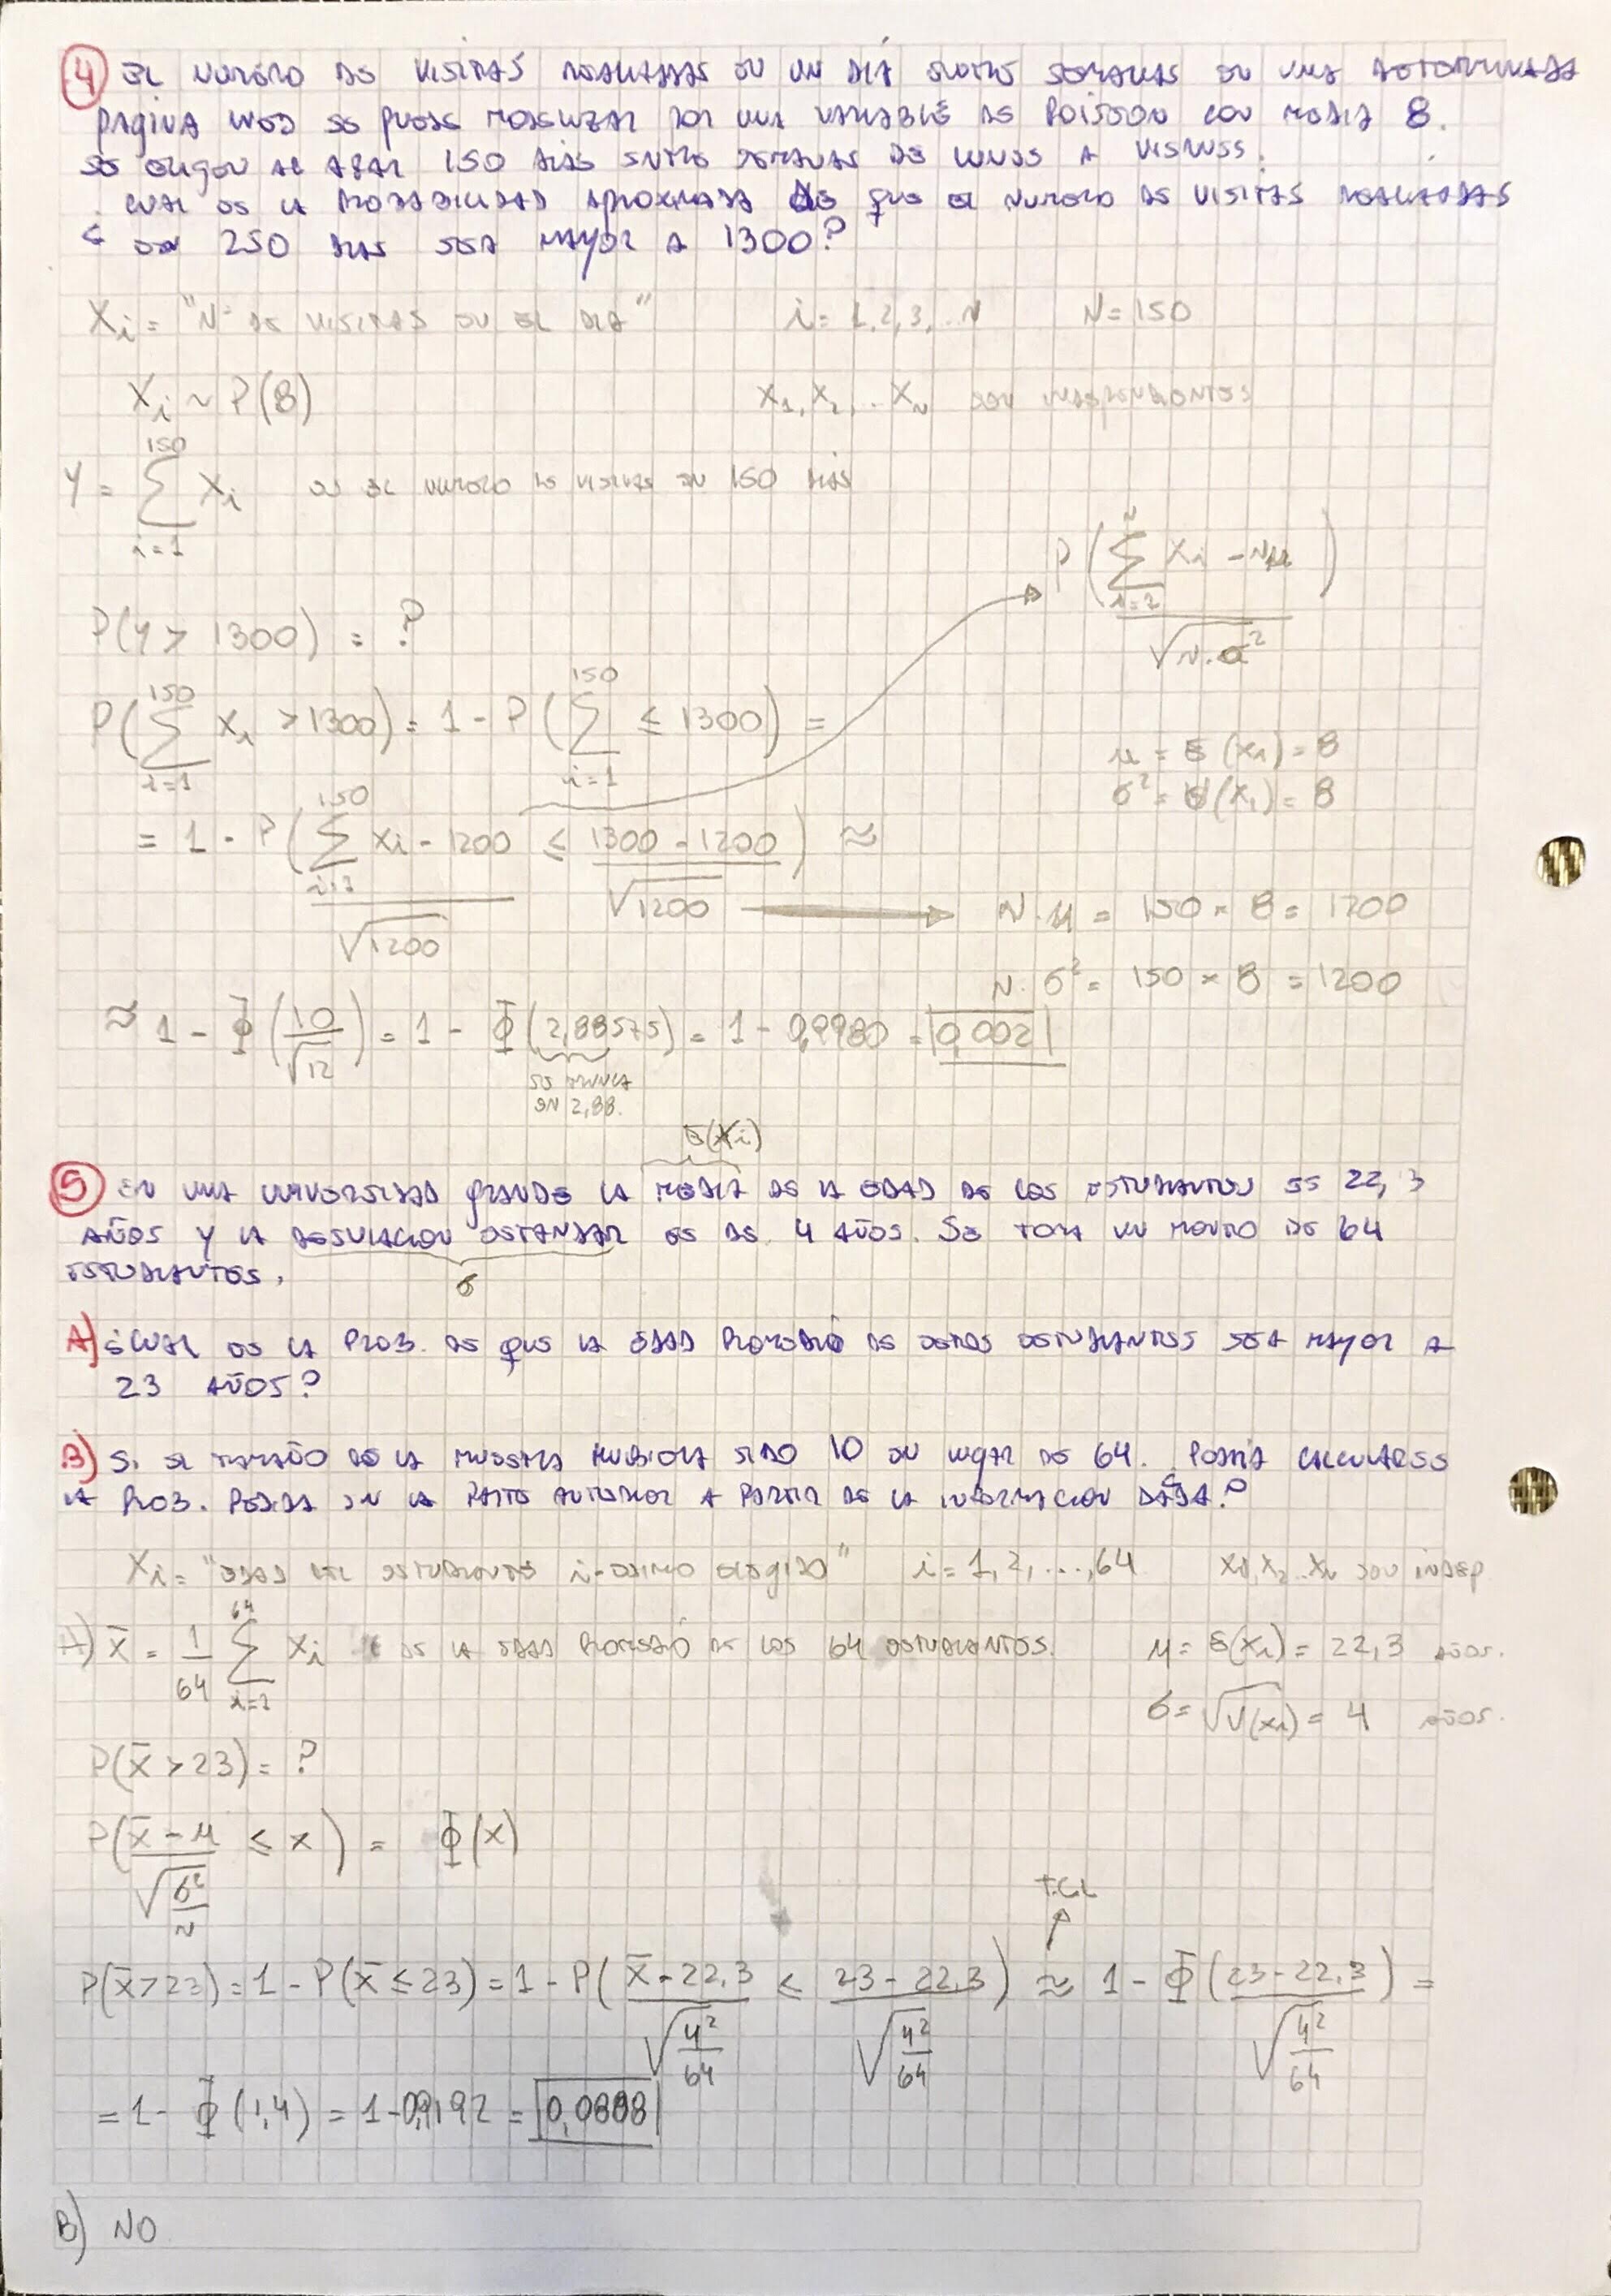 ④ EL NUMERO DE VISITAS REALIZADAS EN UN DIA ENTRE SEMANAS EN UNA DETERMINADA
PAGINA WEB SE PUEDE MODELIZAR POR UNA VARIABLE DE POISSON CON MEDIA 8.
SE ELIGEN AL AZAR 150 DIAS ENTRE SEMANAS DE LUNES A VIERNES.
¿ CUAL ES LA PROBABILIDAD APROXIMADA DE QUE EL NUMERO DE VISITAS REALIZADAS
EN 250 DIAS SEA MAYOR A 1300?
Xi = "Nº DE VISITAS EN EL DIA" i = 1,2,3,..N N=150
Xi ~ P(8) X₁, X₂, .. XN SON INDEPENDIENTES
Y = ∑_{i=1}^{150} Xi ES EL NUMERO DE VISITAS EN 150 DIAS
P(∑_{i=1}^{N} Xi - Nμ) / √(N.σ²)
P(Y > 1300) = ?
P(∑_{i=1}^{150} Xi > 1300) = 1 - P(∑_{i=1}^{150} ≤ 1300) =
μ = E(Xi) = 8
σ² = V(Xi) = 8
= 1 - P((∑_{i=1}^{150} Xi - 1200)/√1200 ≤ (1300 - 1200)/√1200) ≈
N.μ = 150 × 8 = 1200
N.σ² = 150 × 8 = 1200
≈ 1 - Φ(10/√12) = 1 - Φ(2,88575) = 1 - 0,9980 = 0,002
SE TRUNCA
EN 2,88.
E(Xi)
⑤ EN UNA UNIVERSIDAD GRANDE LA MEDIA DE LA EDAD DE LOS ESTUDIANTES ES 22,3
AÑOS Y LA DESVIACION ESTANDAR ES DE 4 AÑOS. SE TOMA UN MONTO DE 64
ESTUDIANTES.
σ
A) ¿CUAL ES LA PROB. DE QUE LA EDAD PROMEDIO DE ESTOS ESTUDIANTES SEA MAYOR A
23 AÑOS?
B) SI EL TAMAÑO DE LA MUESTRA HUBIERA SIDO 10 EN LUGAR DE 64. PODRIA CALCULARSE
LA PROB. PEDIDA EN LA PARTE ANTERIOR A PARTIR DE LA INFORMACION DADA?
Xi = "EDAD DEL ESTUDIANTE i-ESIMO ELEGIDO" i = 1,2,...,64 X1,X2..XN SON INDEP
A) X̄ = 1/64 ∑_{i=1}^{64} Xi ES LA EDAD PROMEDIO DE LOS 64 ESTUDIANTES. μ = E(Xi) = 22,3 AÑOS.
σ = √V(Xi) = 4 AÑOS.
P(X̄ > 23) = ?
P((X̄ - μ)/√(σ²/N) ≤ x) = Φ(x)
T.C.L
P(X̄>23) = 1 - P(X̄ ≤ 23) = 1 - P((X̄ - 22,3)/√(4²/64) ≤ (23 - 22,3)/√(4²/64)) ≈ 1 - Φ((23 - 22,3)/√(4²/64)) =
= 1 - Φ(1,4) = 1 - 0,9192 = 0,0808
B) NO